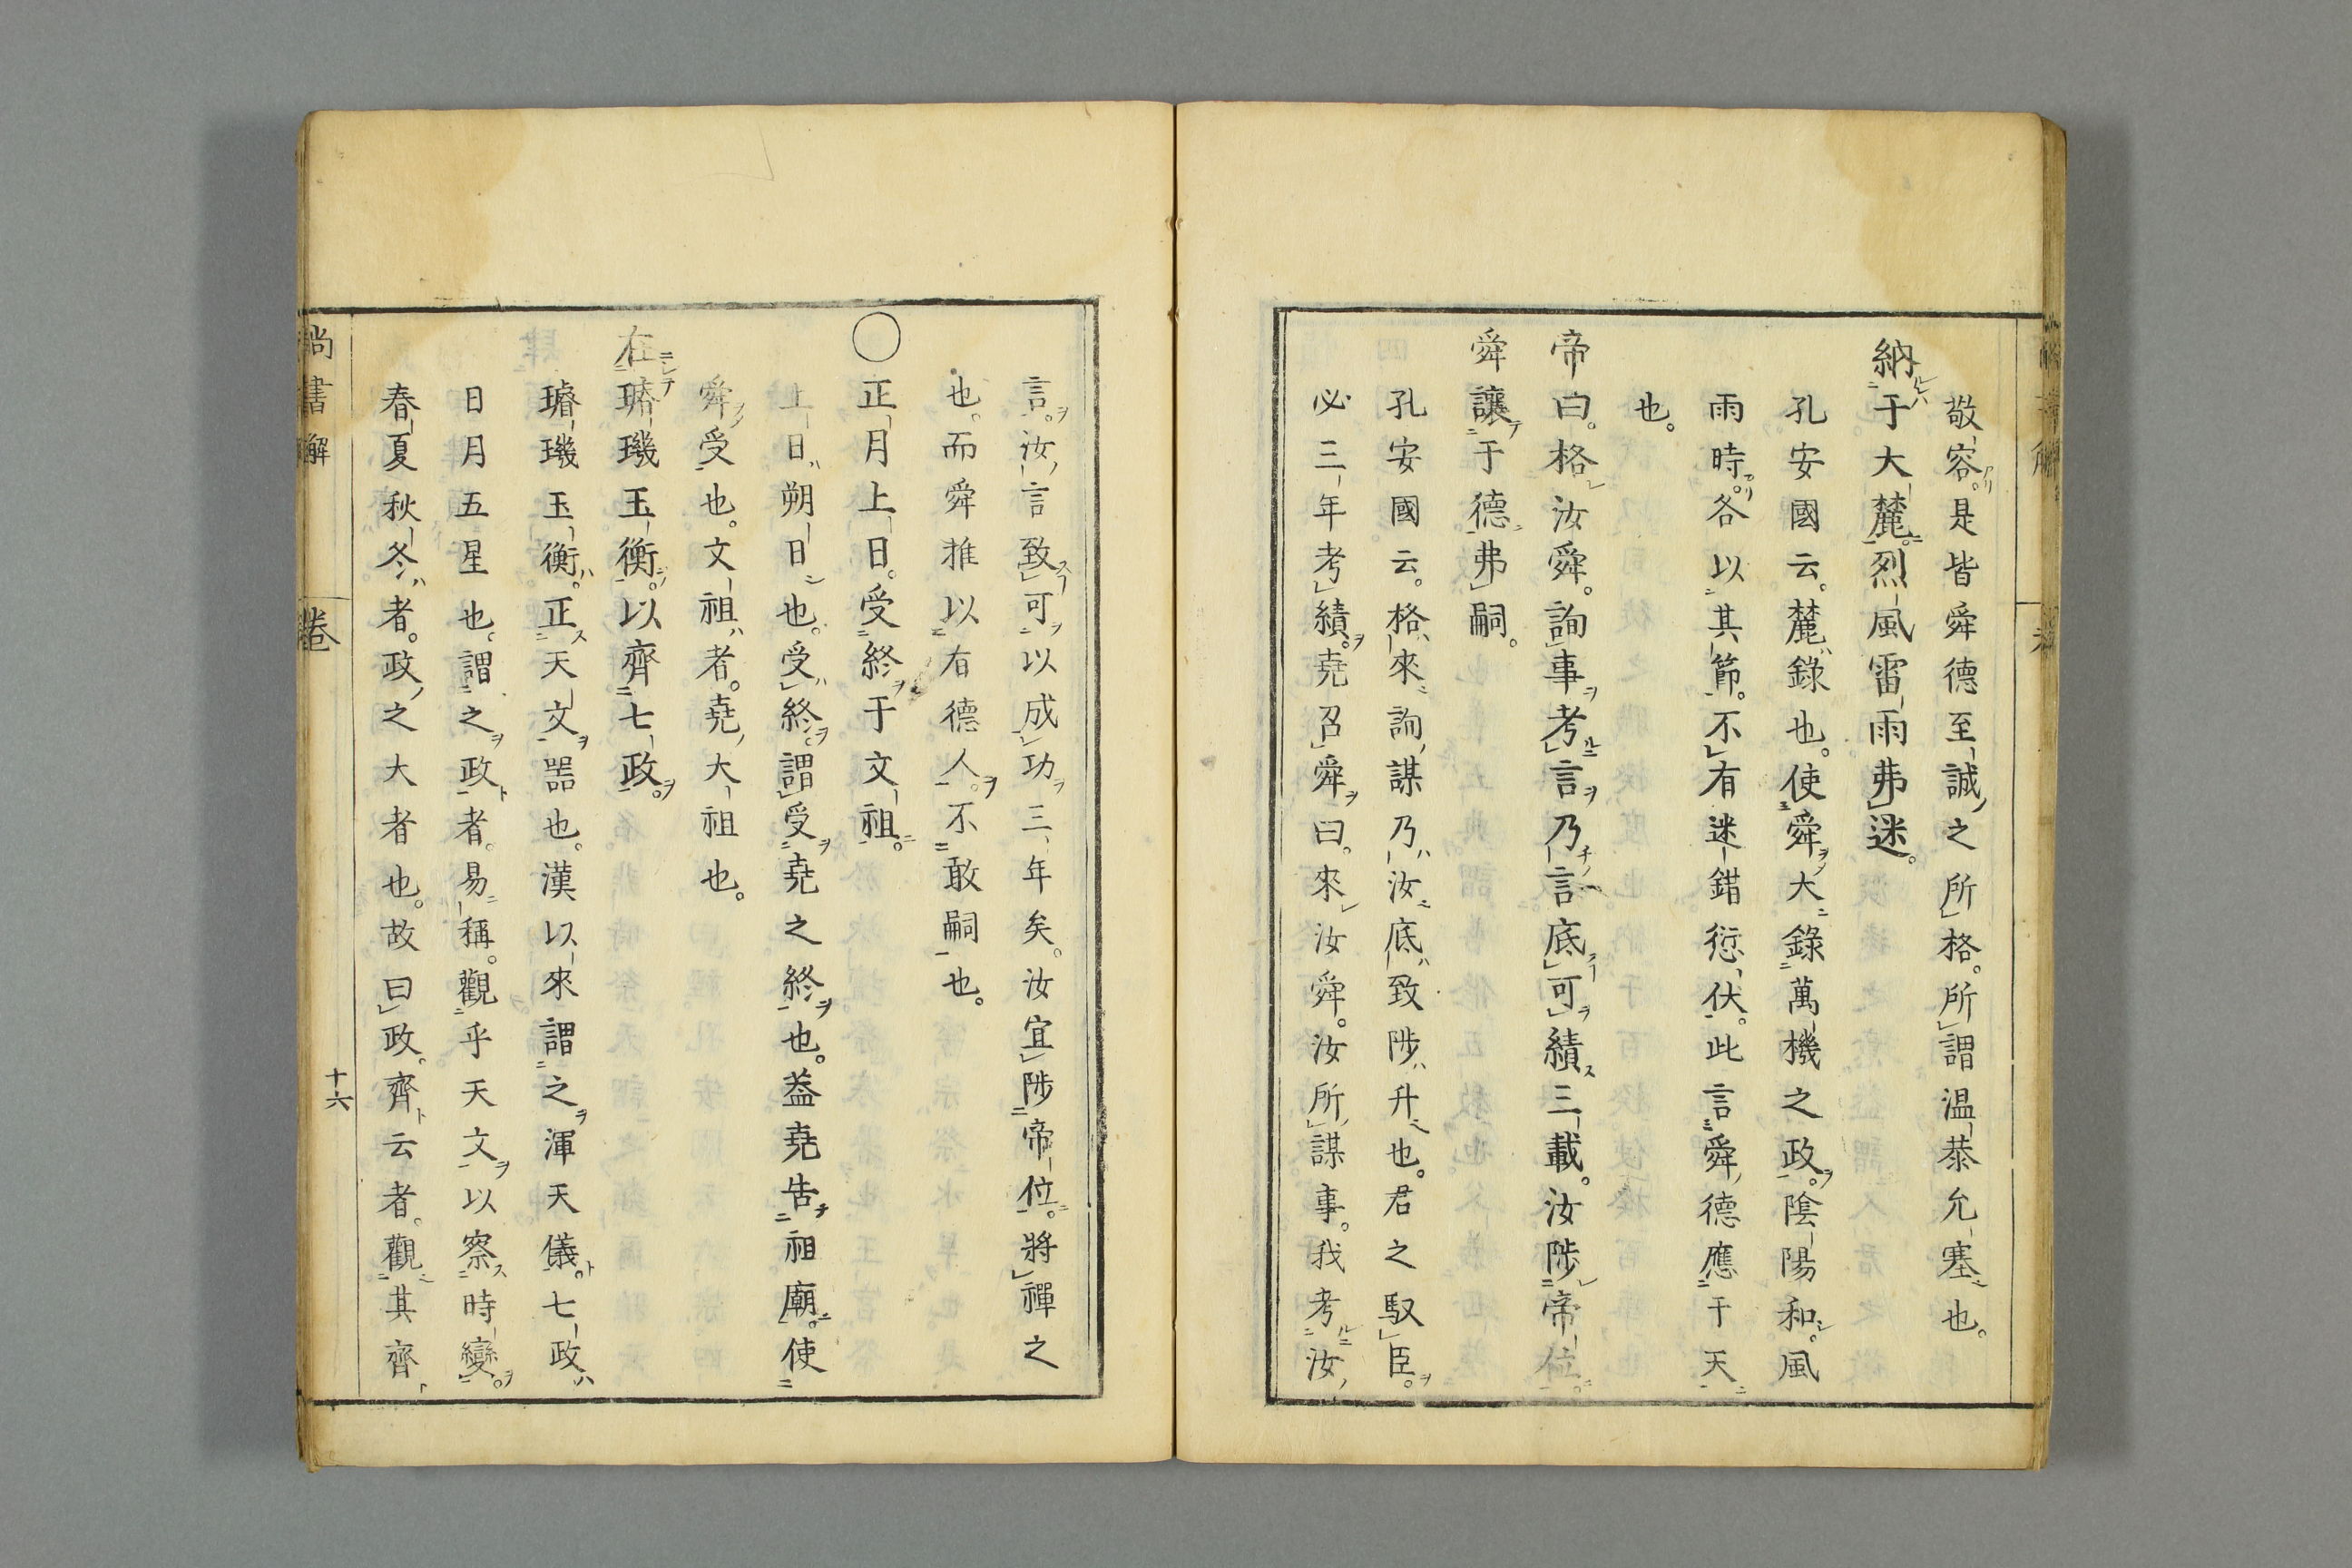 敬容。是皆舜德至誠之所格。所謂温恭允塞也。
納于大麓。烈風雷雨弗迷。
孔安國云。麓錄也。使舜大錄萬機之政。陰陽和。風
雨時。各以其節。不有迷錯愆伏。此言舜德應于天
也。
帝曰。格汝舜。詢事考言乃言底可績三載。汝陟帝位。
舜讓于德弗嗣。
孔安國云。格來詢謀乃汝底致陟升也。君之馭臣。
必三年考績。堯召舜曰。來汝舜。汝所謀事。我考汝
言。汝言致可以成功三年矣。汝宜陟帝位。將禪之
也。而舜推以有德人。不敢嗣也。
〇正月上日。受終于文祖。
上日朔日也。受終。謂受堯之終也。葢堯告祖廟。使
舜受也。文祖者。堯大祖也。
在璿璣玉衡。以齊七政。
璿璣玉衡。正天文噐也。漢以來謂之渾天儀。七政
日月五星也。謂之政者。易稱。觀乎天文以察時變。
春夏秋冬者。政之大者也。故曰政。齊云者。觀其齊
尚書解
卷
十六